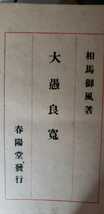 相馬御風著
大愚良寬
春陽堂發行